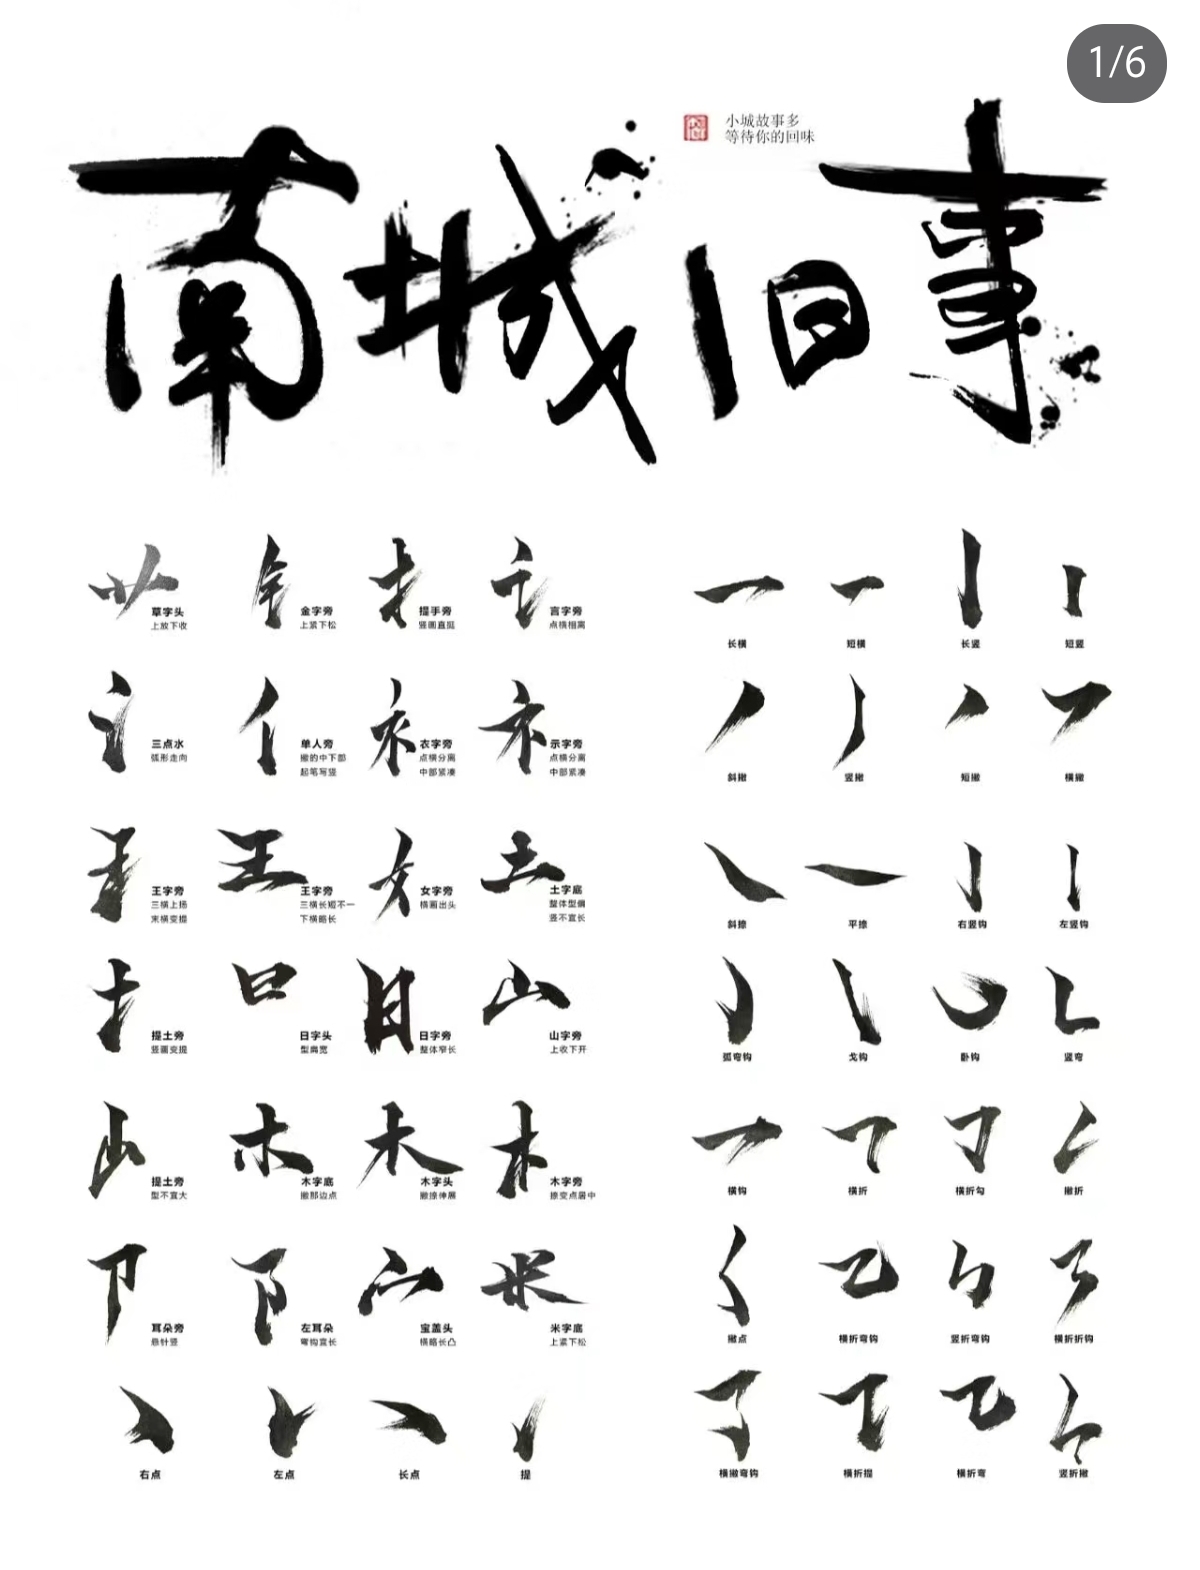 1/6
南城旧事
小城故事多
等待你的回味
草字头
上放下收
金字旁
上紧下松
提手旁
竖画直挺
言字旁
点横相离
长横
短横
长竖
短竖
三点水
弧形走向
单人旁
撇的中下部
起笔写竖
衣字旁
点横分离
中部紧凑
示字旁
点横分离
中部紧凑
斜撇
竖撇
短撇
横撇
王字旁
三横上扬
末横变提
王字旁
三横长短不一
下横略长
女字旁
横画出头
土字底
整体型偏
竖不宜长
斜捺
平捺
右竖钩
左竖钩
提土旁
竖画变提
日字头
型扁宽
日字旁
整体窄长
山字旁
上收下开
弧弯钩
戈钩
卧钩
竖弯
提土旁
型不宜大
木字底
撇那边点
木字头
撇捺伸展
木字旁
捺变点居中
横钩
横折
横折勾
撇折
耳朵旁
悬针竖
左耳朵
弯钩宜长
宝盖头
横略长凸
米字底
上紧下松
撇点
横折弯钩
竖折弯钩
横折折钩
右点
左点
长点
提
横撇弯钩
横折提
横折弯
竖折撇